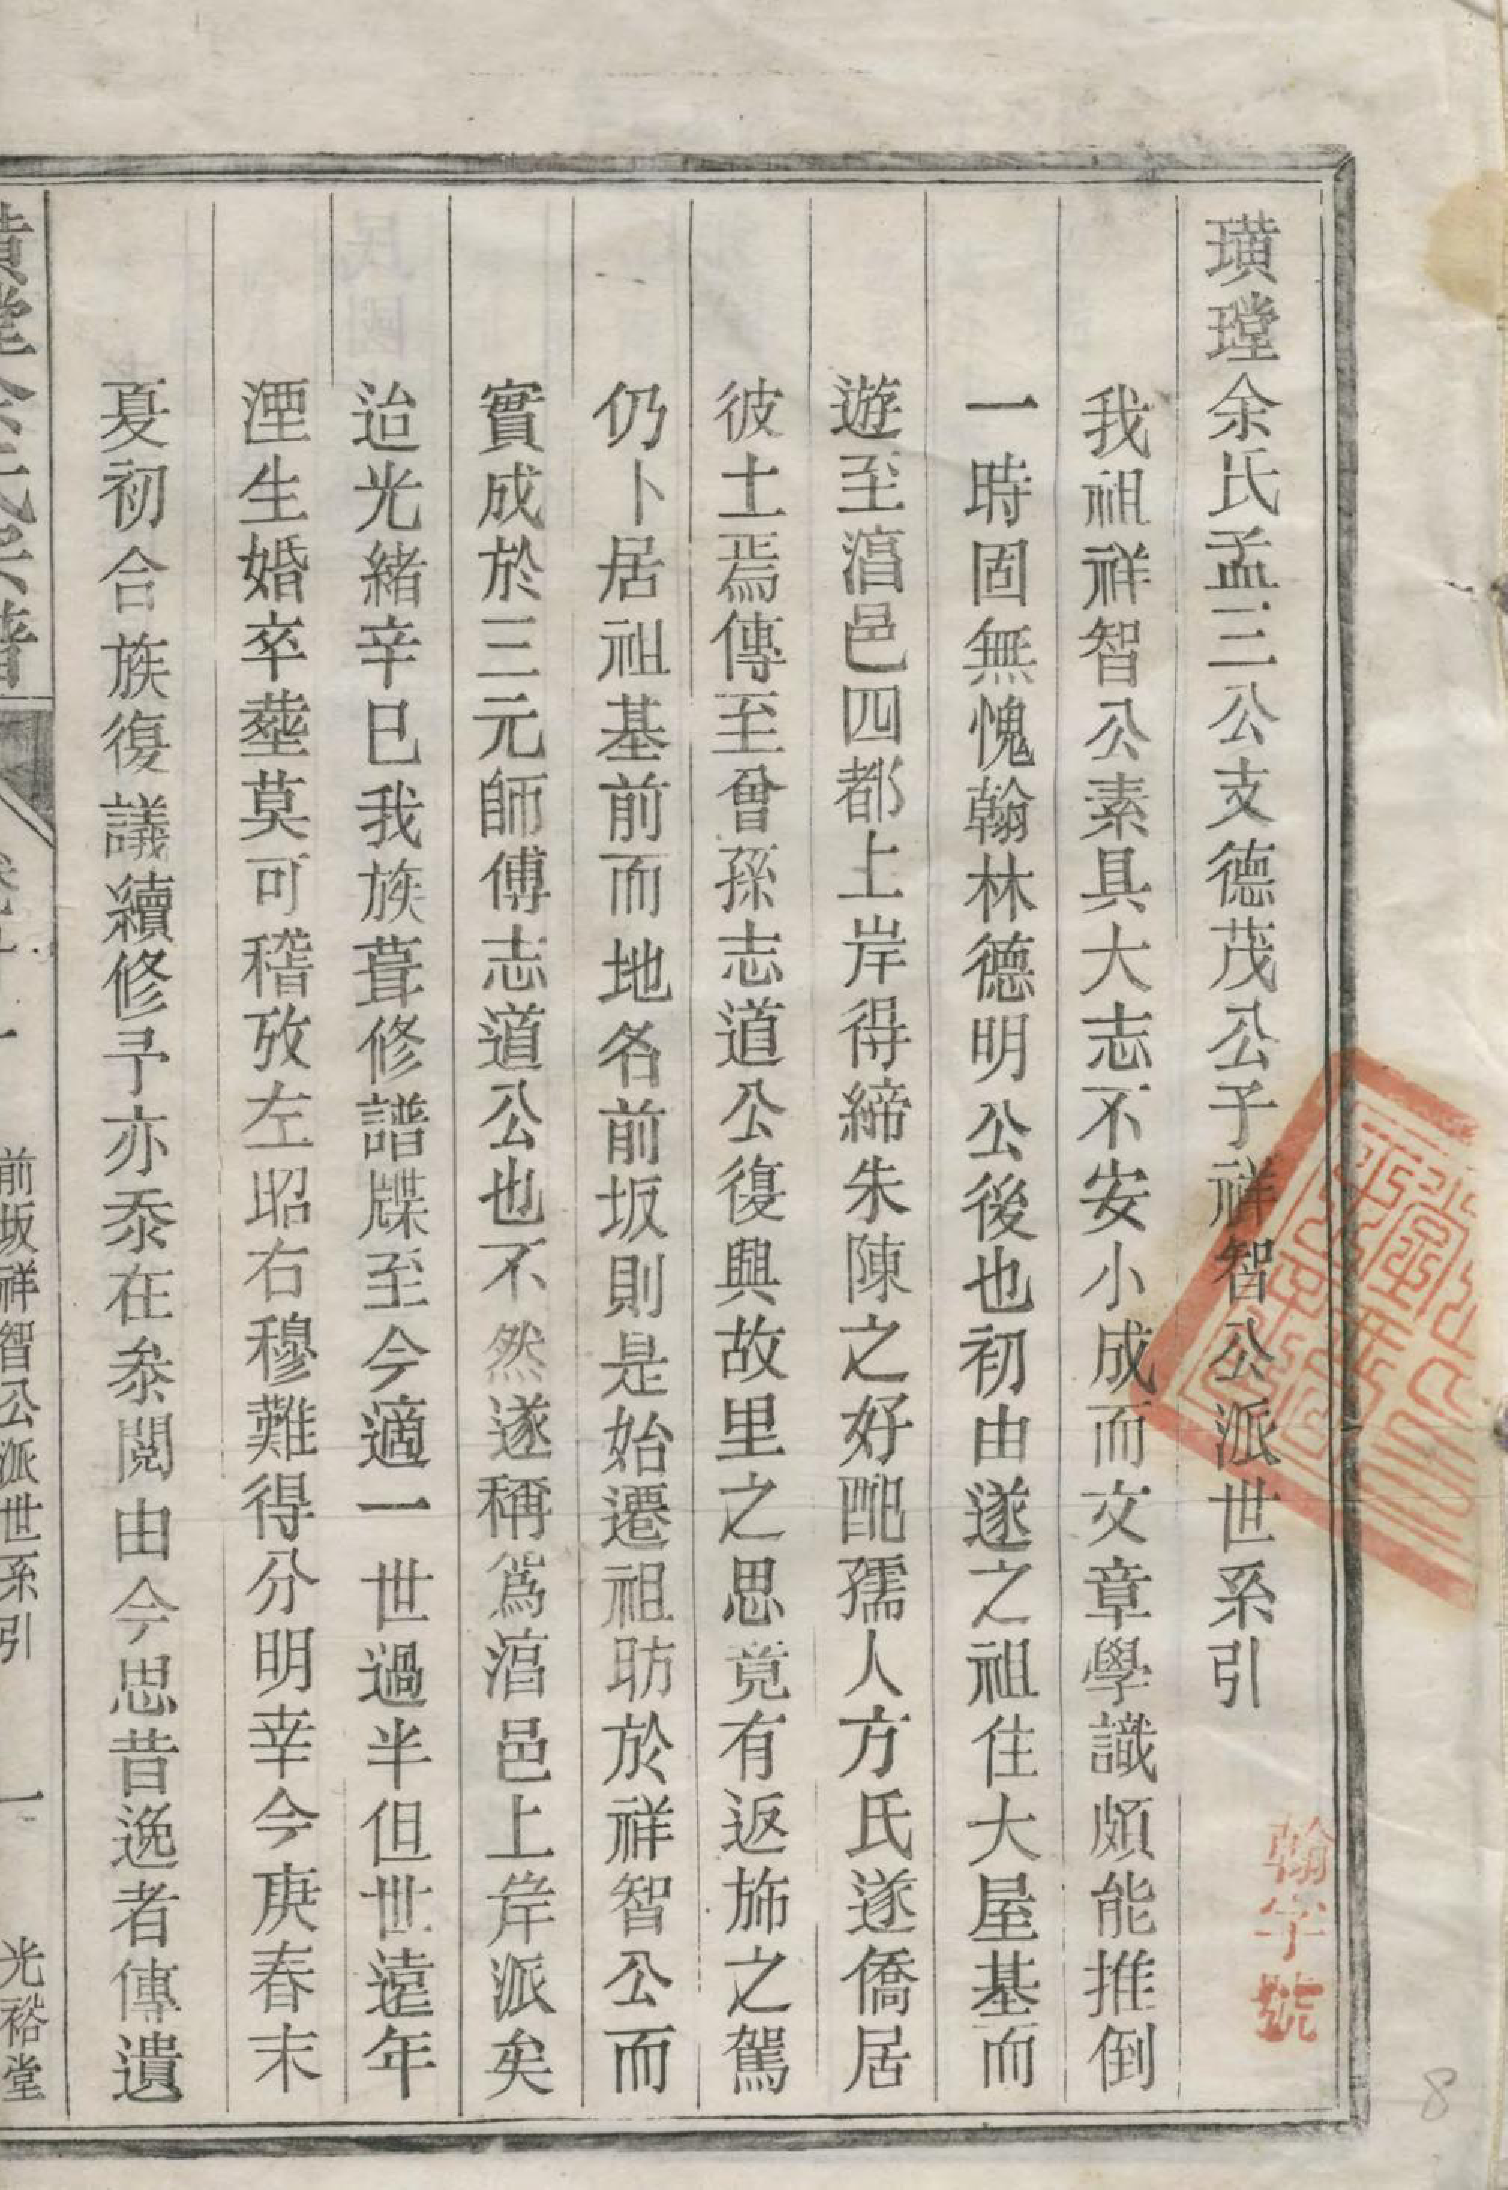 璜瑝余氏孟三公支德茂公子祥智公派世系引
我祖祥智公素具大志不安小成而文章學識頗能推倒
一時固無愧翰林德明公後也初由遂之祖住大屋基而
遊至湻邑四都上岸得締朱陳之好配孺人方氏遂僑居
彼土焉傳至曾孫志道公復興故里之思竟有返斾之駕
仍卜居祖基前而地名前坂則是始遷祖昉於祥智公而
實成於三元師傅志道公也不然遂稱爲湻邑上岸派矣
迨光緒辛巳我族葺修譜牒至今適一世過半但世遠年
湮生婚卒塟莫可稽攷左昭右穆難得分明幸今庚春末
夏初合族復議續修予亦忝在叅閱由今思昔逸者傳遺
前坂祥智公派世系引
一
光裕堂
翰字號
8